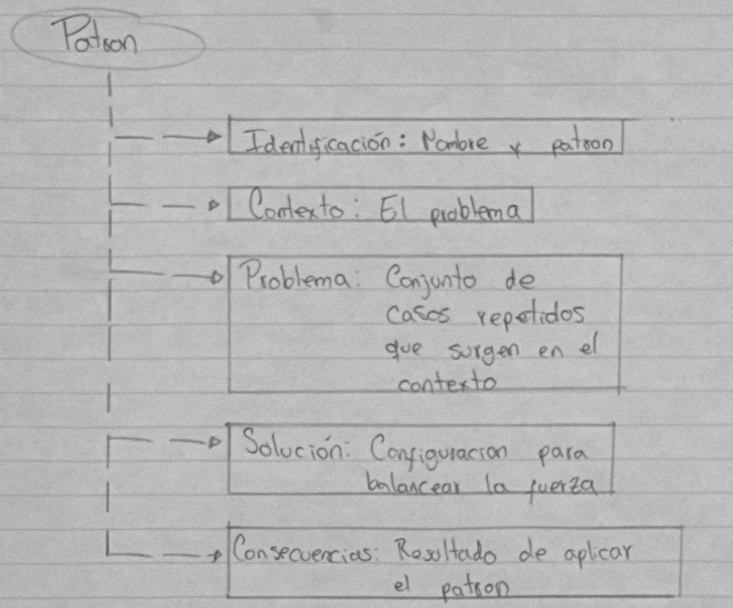 Patron
Identificación: Nombre y patron
Contexto: El problema
Problema: Conjunto de
casos repetidos
que surgen en el
contexto
Solución: Configuracion para
balancear la fuerza
Consecuencias: Resultado de aplicar
el patron